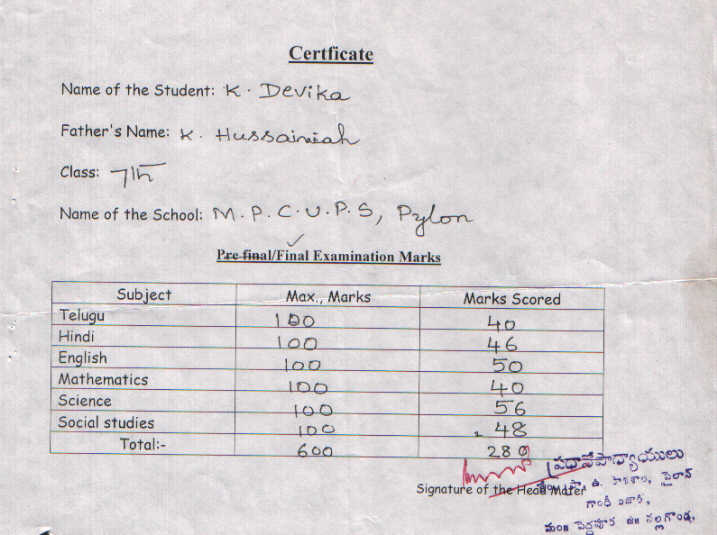 Certficate
Name of the Student: K. Devika
Father's Name: K. Hussainiah
Class: 7th
Name of the School: M.P.C.U.P.S, Pylon
Pre-final/Final Examination Marks
Subject Max., Marks Marks Scored
Telugu 100 40
Hindi 100 46
English 100 50
Mathematics 100 40
Science 100 56
Social studies 100 48
Total:- 600 280
ప్రధానోపాధ్యాయులు
Signature of the Head పైలాన్
గాంధీ